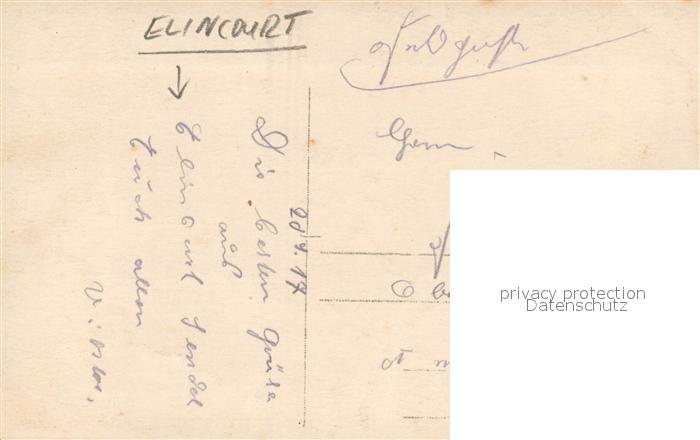 ELINCOURT
Feldpost
20 4. 17
Die besten Grüße
aus
Elincourt sendet
Euch allen
Herrn
privacy protection
Datenschutz